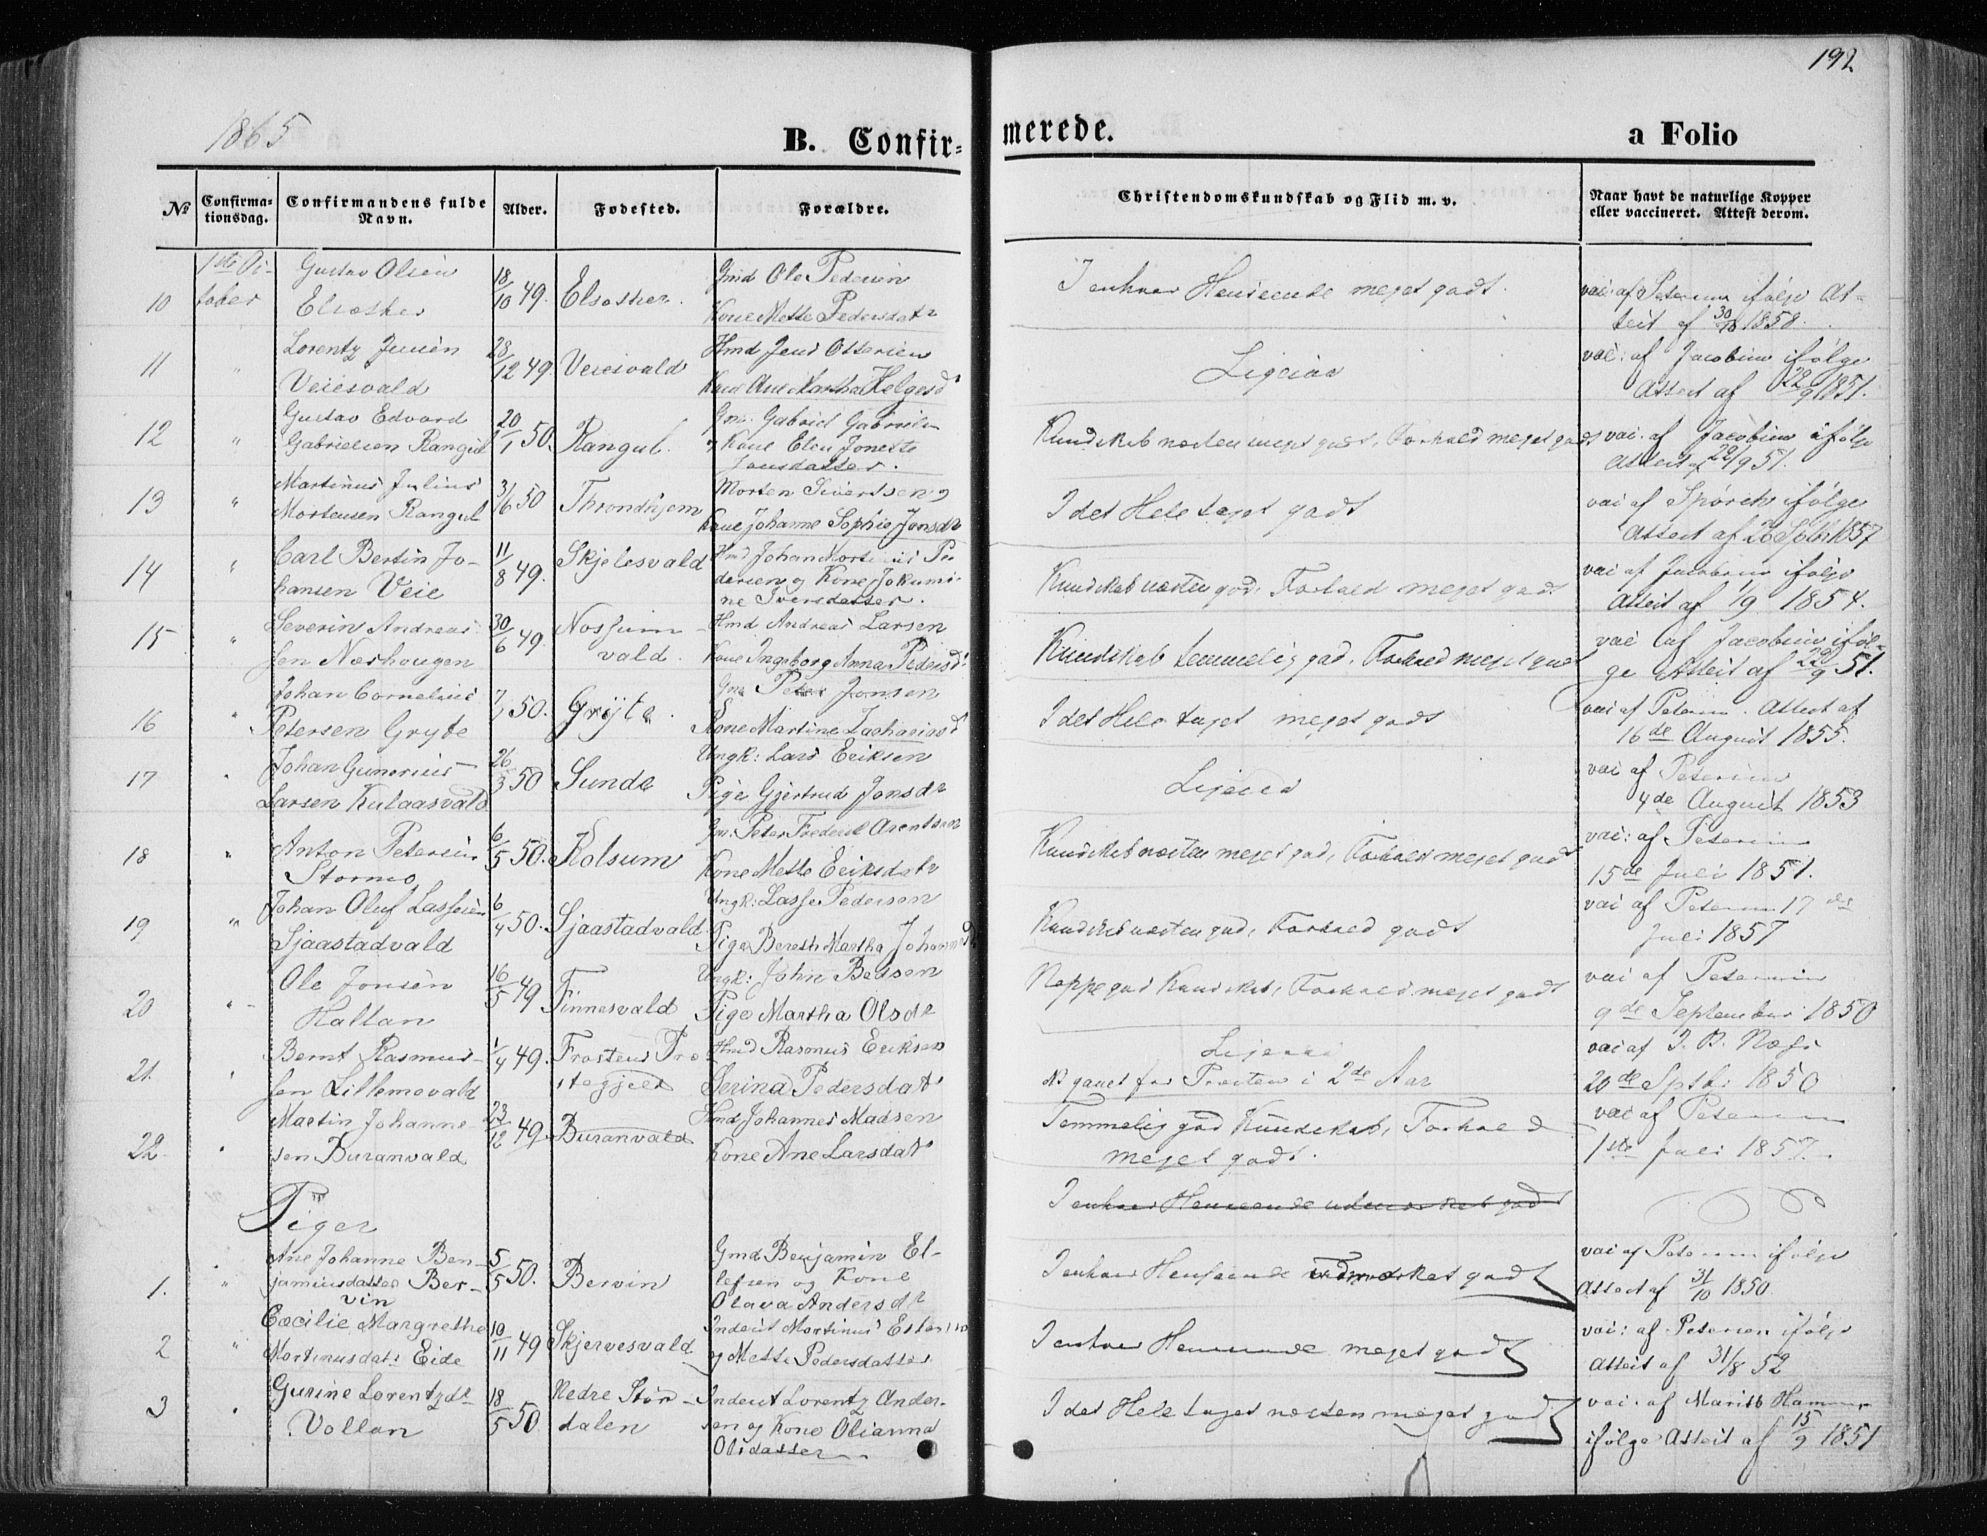 192
1865
B. Confir-
merede.
a Folio
No
Confirma-
tionsdag.
Confirmandens fulde
Navn.
Alder.
Fødested.
Forældre.
Christendomskundskab og Flid m. v.
Naar havt de naturlige Kopper
eller vaccineret. Attest derom.
10
1ste Oc-
tober
Gustav Olsen
Elvether
18/10 49.
Gmd Ole Pedersen
Kone Mette Pedersdatr
I enhver Henseende meget godt.
vac: af Petersen ifølge At-
test af 30/10 1858.
11
"
Lorentz Jensen
Veiesvald
28/12 49.
Veiesvald
Hmd Jens Ottersen
Kone Ane Martha Helgesd
Ligesaa
vac: af Jacobsen ifølge
Attest af 22/9 1851.
12
"
Gustav Edvard
Gabrielsen Rangul
20/1 50.
Rangul.
Gm. Gabriel Gabriels
og Kone Elen Jonette
Jonsdatter.
Kundskab næsten meget god, Forhold meget godt
vac. af Jacobsen ifølge
Attest af 22/9 51.
13
"
Martinus Julius
Mortensen Rangul
3/6 50
Throndhjem
Morten Sivertsen og
Kone Johanne Sophie Jonsdr
I det Hele taget godt
vac af Spørck ifølge
Attest af 26 Septbr 1857
14
"
Carl Bertin Jo-
hansen Veie
11/8 49.
Skjelesvald
Hmd Johan Mortinus Pe-
dersen og Kone Jokumi-
ne Iversdatter.
Kundskab næsten god, Forhold meget godt
vac af Jacobsen ifølge
Attest af 1/9 1854.
15
"
Severin Andreas-
sen Neshougen
30/6 49.
Nossum-
vald.
Hmd Andreas Larsen
Kone Ingeborg Anna Pedersd
Kundskab temmelig god, Forhold meget godt
vac af Jacobsen iføl-
ge Attest af 22/9 51.
16
"
Johan Cornelius
Petersen Gryte
50.
Gryte.
Gm Peter Jonsen
Kone Martine Zachariasd
I det Hele taget meget godt
vac af Petersen. Attest af
16de August 1855.
17
"
Johan Gunerius
Larsen Kulaasvald
26/3 50
Sunde
Ungk: Lars Eriksen
Pige Gjertrud Jonsdr
Ligesaa
vac af Petersen
4de August 1853
18
"
Anton Petersen
Stormo
6/5 50.
Kolsum
Gm: Peter Frederik Arentsen
Kone Mette Eriksdatr
Kundskab næsten meget god, Forhold meget godt
vac: af Petersen
15de Juli 1851.
19
"
Johan Oluf Lassesen
Sjaastadvald
6/4 50.
Sjaastadvald
Ungk: Lasse Pedersen
Pige Bereth Martha Johansd
Kundskab næsten god, Forhold godt
vac af Petersen 17de
Juli 1857
20
"
Ole Jonsen
Haltan
16/5 49
Finnesvald
Ungk: John Bersen
Pige Martha Olsdr
Neppe god Kundskab, Forhold meget godt
vac af Petersen
9de September 1850
21.
"
Bernt Rasmus-
sen Lillemovald
1/4 49.
Frostens Præ
stegjeld
Hmd Rasmus Eriksen
Serina Pedersdatr
Ligesaa
NB ganet for Præsten i 2de Aar
vac af J. B. Næss
20de Sptbr 1850
22.
"
Martin Johanne-
sen Buranvald
23/12 49.
Buranvald
Hmd Johannes Madsen
Kone Ane Larsdatr
Temmelig god Kundskab, Forhold
meget godt.
vac af Petersen
1ste Juli 1857.
Piger
I enhver Henseende udmærket godt
1.
"
Ane Johanne Ben-
jaminsdatter Ber-
vin
5/5 50.
Bervin
Gmd Benjamin El-
lefsen og Kone
Olava Andersdr
I enhver Henseende udmærket godt
vac af Petersen ifølge
Attest af 31/10 1850.
2
"
Cæcilie Margrethe
Martinusdatr Eide
10/11 49
Skjervesvald
Inderst Martinus
og Mette Pedersdatter
I enhver Henseende meget godt
vac: af Petersen ifølge
Attest af 31/8 52
3
"
Gurine Lorentzdr
Vollan
18/5 50
Nedre Stør-
dalen
Inderst Lorentz Ander-
sen og Kone Olianna
Olsdatter
I det Hele taget næsten meget godt
vac. af Marith Hammer
ifølge Attest af 15/9 1851